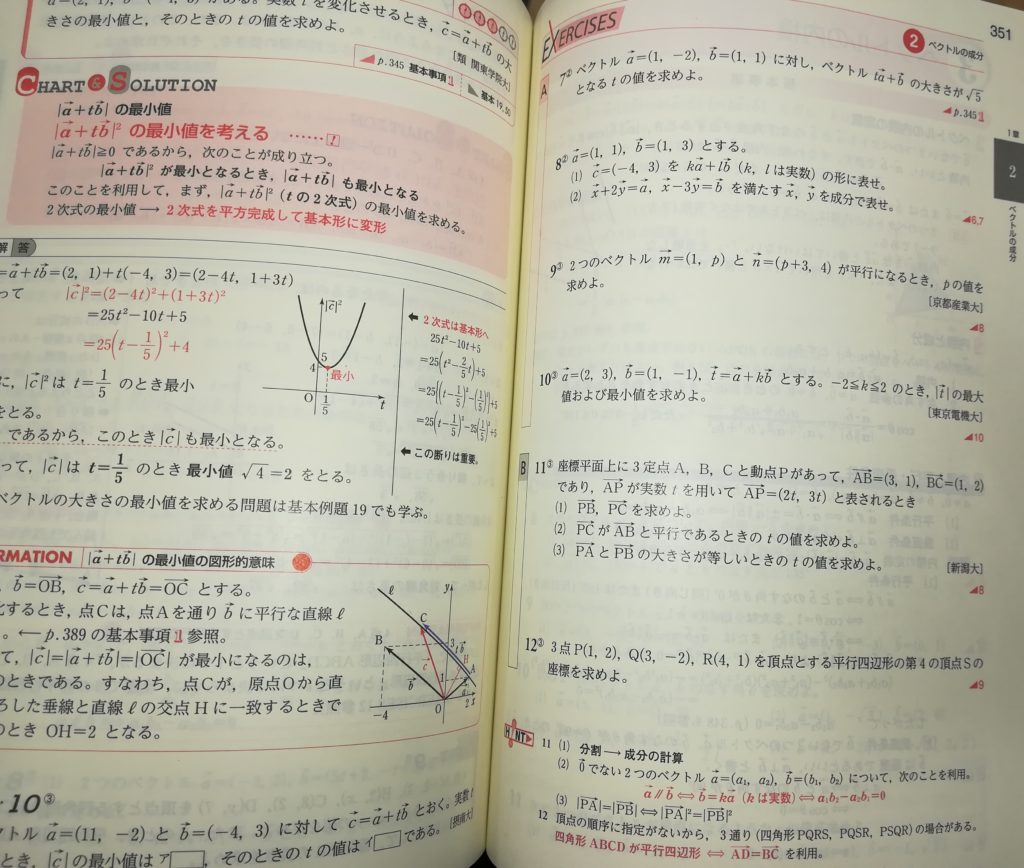 きさの最小値と，そのときの t の値を求めよ。
[類 関東学院大]
p.345 基本事項 1
基本 19, 50
CHART & SOLUTION
|a⃗+tb⃗| の最小値
|a⃗+tb⃗|² の最小値を考える ……1
|a⃗+tb⃗|≧0 であるから，次のことが成り立つ。
|a⃗+tb⃗|² が最小となるとき，|a⃗+tb⃗| も最小となる
このことを利用して，まず，|a⃗+tb⃗|²（t の2次式）の最小値を求める。
2次式の最小値 → 2次式を平方完成して基本形に変形
解 答
=a⃗+tb⃗=(2, 1)+t(-4, 3)=(2-4t, 1+3t)
って |c⃗|²=(2-4t)²+(1+3t)²
=25t²-10t+5
=25(t-1/5)²+4
に，|c⃗|² は t=1/5 のとき最小
をとる。
であるから，このとき |c⃗| も最小となる。
って，|c⃗| は t=1/5 のとき 最小値 √4=2 をとる。
|c⃗|²
5
4
最小
O
1/5
t
← 2次式は基本形へ
25t²-10t+5
=25(t²-2/5t)+5
=25{(t-1/5)²-(1/5)²}+5
=25(t-1/5)²-25(1/5)²+5
← この断りは重要。
ベクトルの大きさの最小値を求める問題は基本例題 19 でも学ぶ。
RMATION |a⃗+tb⃗| の最小値の図形的意味
，b⃗=OB⃗，c⃗=a⃗+tb⃗=OC⃗ とする。
化するとき，点Cは，点Aを通り b⃗ に平行な直線 ℓ
。←p.389 の基本事項 1 参照。
て，|c⃗|=|a⃗+tb⃗|=|OC⃗| が最小になるのは，
のときである。すなわち，点Cが，原点Oから直
ろした垂線と直線 ℓ の交点 H に一致するときで
のとき OH=2 となる。
ℓ
y
C
B
3
tb⃗
H
A
c⃗
b⃗
1
a⃗
-4
O
2
x
10③
クトル a⃗=(11, -2) と b⃗=(-4, 3) に対して c⃗=a⃗+tb⃗ とおく。実数 t
とき，|c⃗| の最小値は ア□，そのときの t の値は イ□ である。
[摂南大]
EXERCISES
2 ベクトルの成分
351
A
7② ベクトル a⃗=(1, -2)，b⃗=(1, 1) に対し，ベクトル ta⃗+b⃗ の大きさが √5
となる t の値を求めよ。
p.345 1
8② a⃗=(1, 1)，b⃗=(1, 3) とする。
(1) c⃗=(-4, 3) を ka⃗+lb⃗ (k, l は実数) の形に表せ。
(2) x⃗+2y⃗=a⃗，x⃗-3y⃗=b⃗ を満たす x⃗，y⃗ を成分で表せ。
6,7
9③ 2つのベクトル m⃗=(1, p) と n⃗=(p+3, 4) が平行になるとき，p の値を
求めよ。
[京都産業大]
8
10③ a⃗=(2, 3)，b⃗=(1, -1)，t⃗=a⃗+kb⃗ とする。-2≦k≦2 のとき，|t⃗| の最大
値および最小値を求めよ。
[東京電機大]
10
B
11③ 座標平面上に3定点 A，B，C と動点Pがあって，AB⃗=(3, 1)，BC⃗=(1, 2)
であり，AP⃗ が実数 t を用いて AP⃗=(2t, 3t) と表されるとき
(1) PB⃗，PC⃗ を求めよ。
(2) PC⃗ が AB⃗ と平行であるときの t の値を求めよ。
(3) PA⃗ と PB⃗ の大きさが等しいときの t の値を求めよ。
[新潟大]
8
12③ 3点 P(1, 2)，Q(3, -2)，R(4, 1) を頂点とする平行四辺形の第4の頂点Sの
座標を求めよ。
9
HINT
11 (1) 分割 → 成分の計算
(2) 0⃗ でない2つのベクトル a⃗=(a₁, a₂)，b⃗=(b₁, b₂) について，次のことを利用。
a⃗∥b⃗ ⇔ b⃗=ka⃗ (k は実数) ⇔ a₁b₂-a₂b₁=0
(3) |PA⃗|=|PB⃗| ⇔ |PA⃗|²=|PB⃗|²
12 頂点の順序に指定がないから，3通り (四角形 PQRS, PQSR, PSQR) の場合がある。
四角形 ABCD が平行四辺形 ⇔ AD⃗=BC⃗ を利用。
1章
2
ベクトルの成分